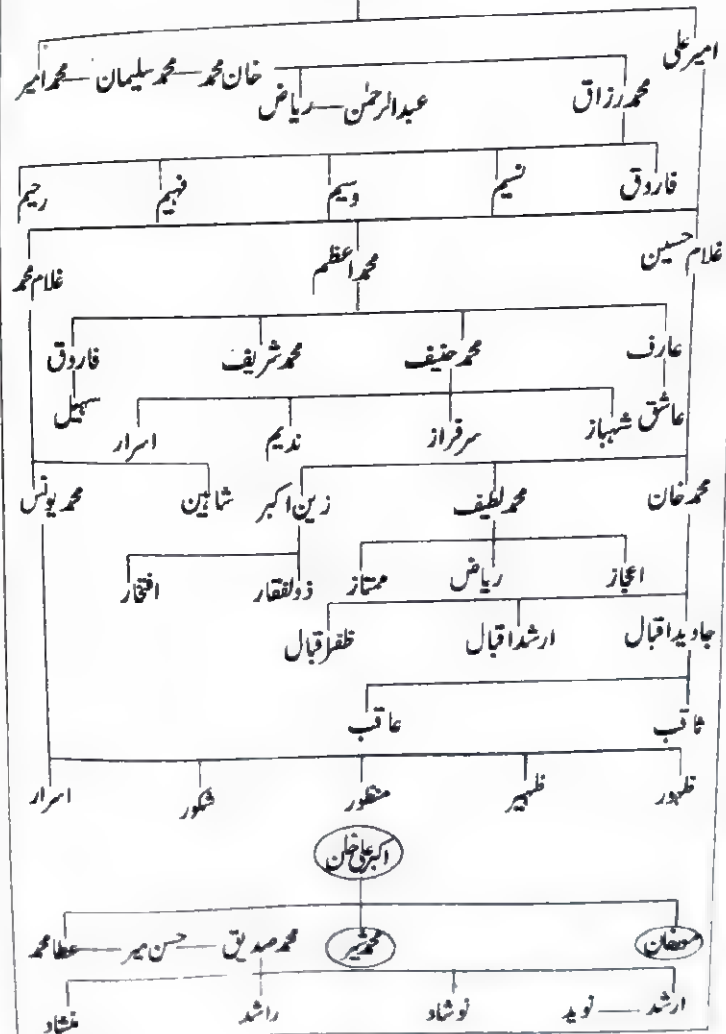 امیر علی
خان محمد — محمد سلیمان — محمد امیر
محمد رزاق عبدالرحمٰن — ریاض
فاروق نسیم وسیم فہیم رحیم
غلام حسین محمد اعظم غلام محمد
عارف محمد حنیف محمد شریف فاروق
عاشق شہباز سرفراز ندیم اسرار سہیل
محمد خان محمد لطیف زین اکبر شاہین محمد یونس
اعجاز ریاض ممتاز ذولفقار افتخار
جاوید اقبال ارشد اقبال ظفر اقبال
ثاقب عاقب
ظہور ظہیر منظور شکور اسرار
اکبر علی خان
محمد شیر محمد صدیق — حسن میر — عطا محمد
ارشد — نوید نوشاد راشد منشاد